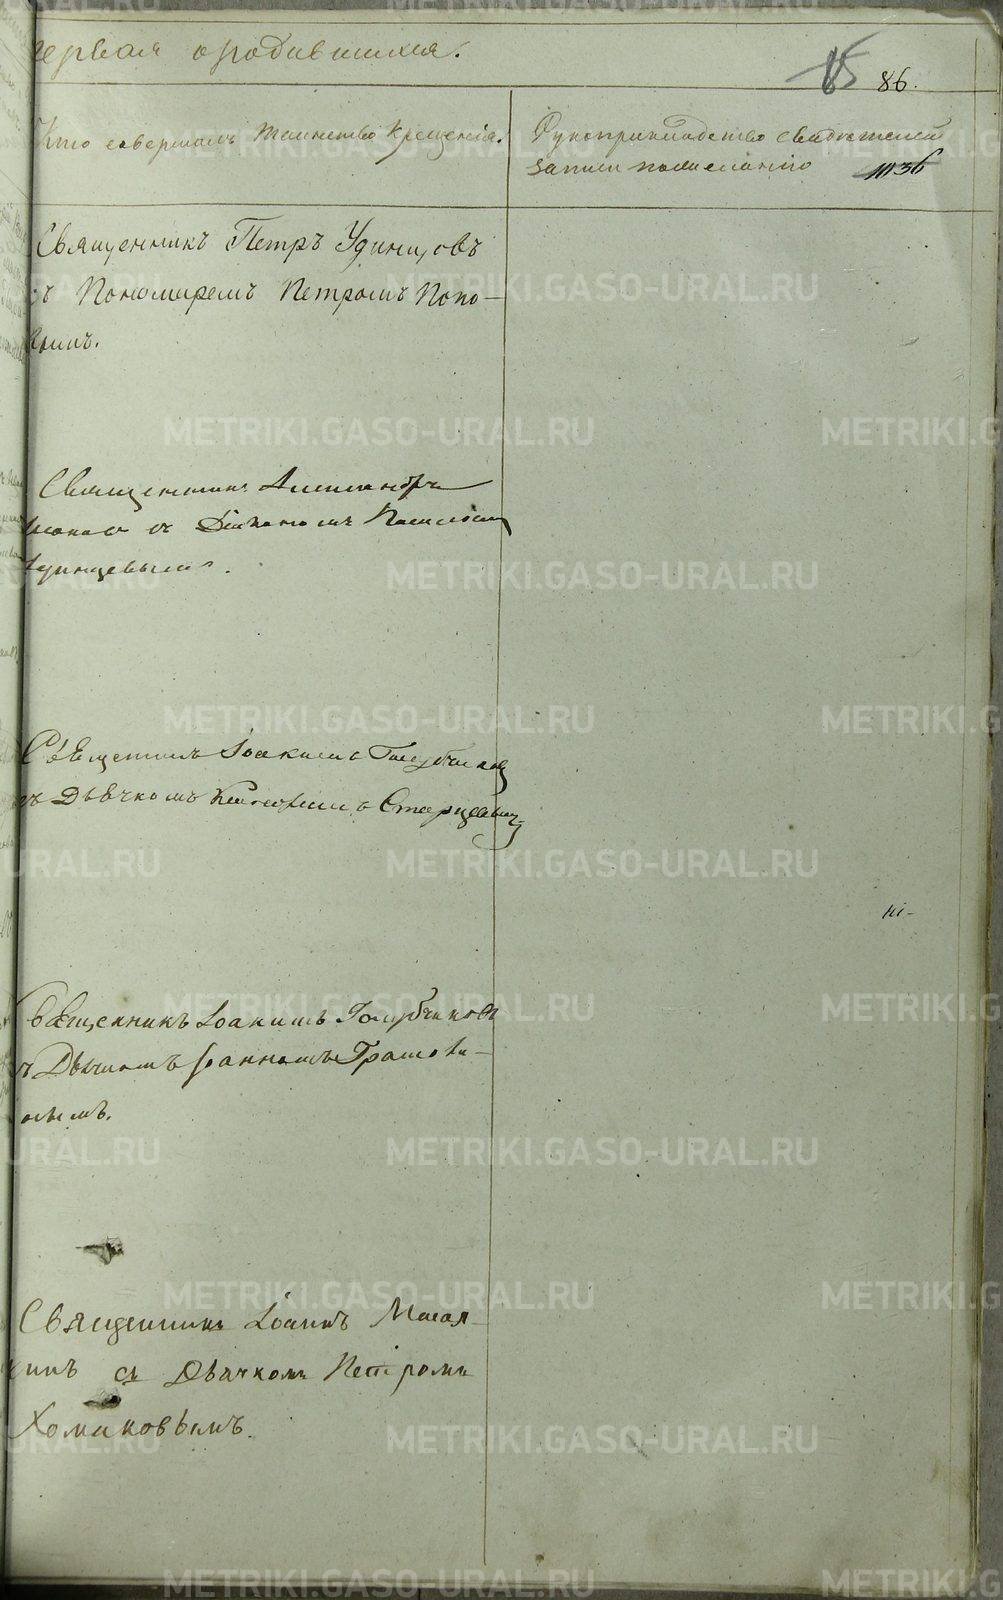 первая о родившихся.
85 86.
Кто совершалъ таинство крещенія.
Рукоприкладство свидѣтелей
записи по желанію 1136
Священникъ Петръ Удинцовъ
съ Пономаремъ Петромъ Попо-
вымъ.
Священникъ Александръ
съ Діакономъ
Священникъ Іоакимъ Голубчиковъ
съ Дьячкомъ Старцевымъ
Священникъ Іоакимъ Голубчиковъ
съ Дьячкомъ Іоанномъ
Священникъ Іоаннъ
съ Дьячкомъ Петромъ
Хомяковымъ.
METRIKI.GASO-URAL.RU